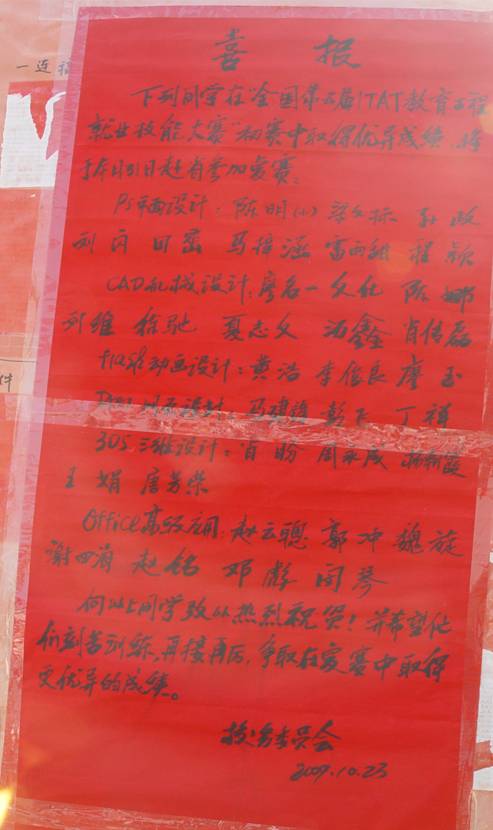 一连
件
喜报
下列同学在"全国第五届ITAT教育工程
就业技能大赛"初赛中取得优异成绩,将
于本月31日赴省参加复赛。
PS平面设计:陈明(小) 梁 孙
刘闪 田密 马梓涵 富雨甜 程颖
CAD机械设计:廖名一 文化 陈娜
列维 徐驰 夏志文 冯鑫 肖传磊
flash动画设计:黄浩 李俊良 廖玉
网页设计:马建雄 彭飞 丁祥
3DS三维设计:肖盼 周永成 霞
王娟 唐芳荣
Office高级应用:赵云聪 郭冲 魏旋
谢四海 赵铭 邓 闵琴
向以上同学致以热烈祝贺!并希望他
们刻苦训练,再接再厉,争取在复赛中取得
更优异的成绩。
校务委员会
2009.10.23